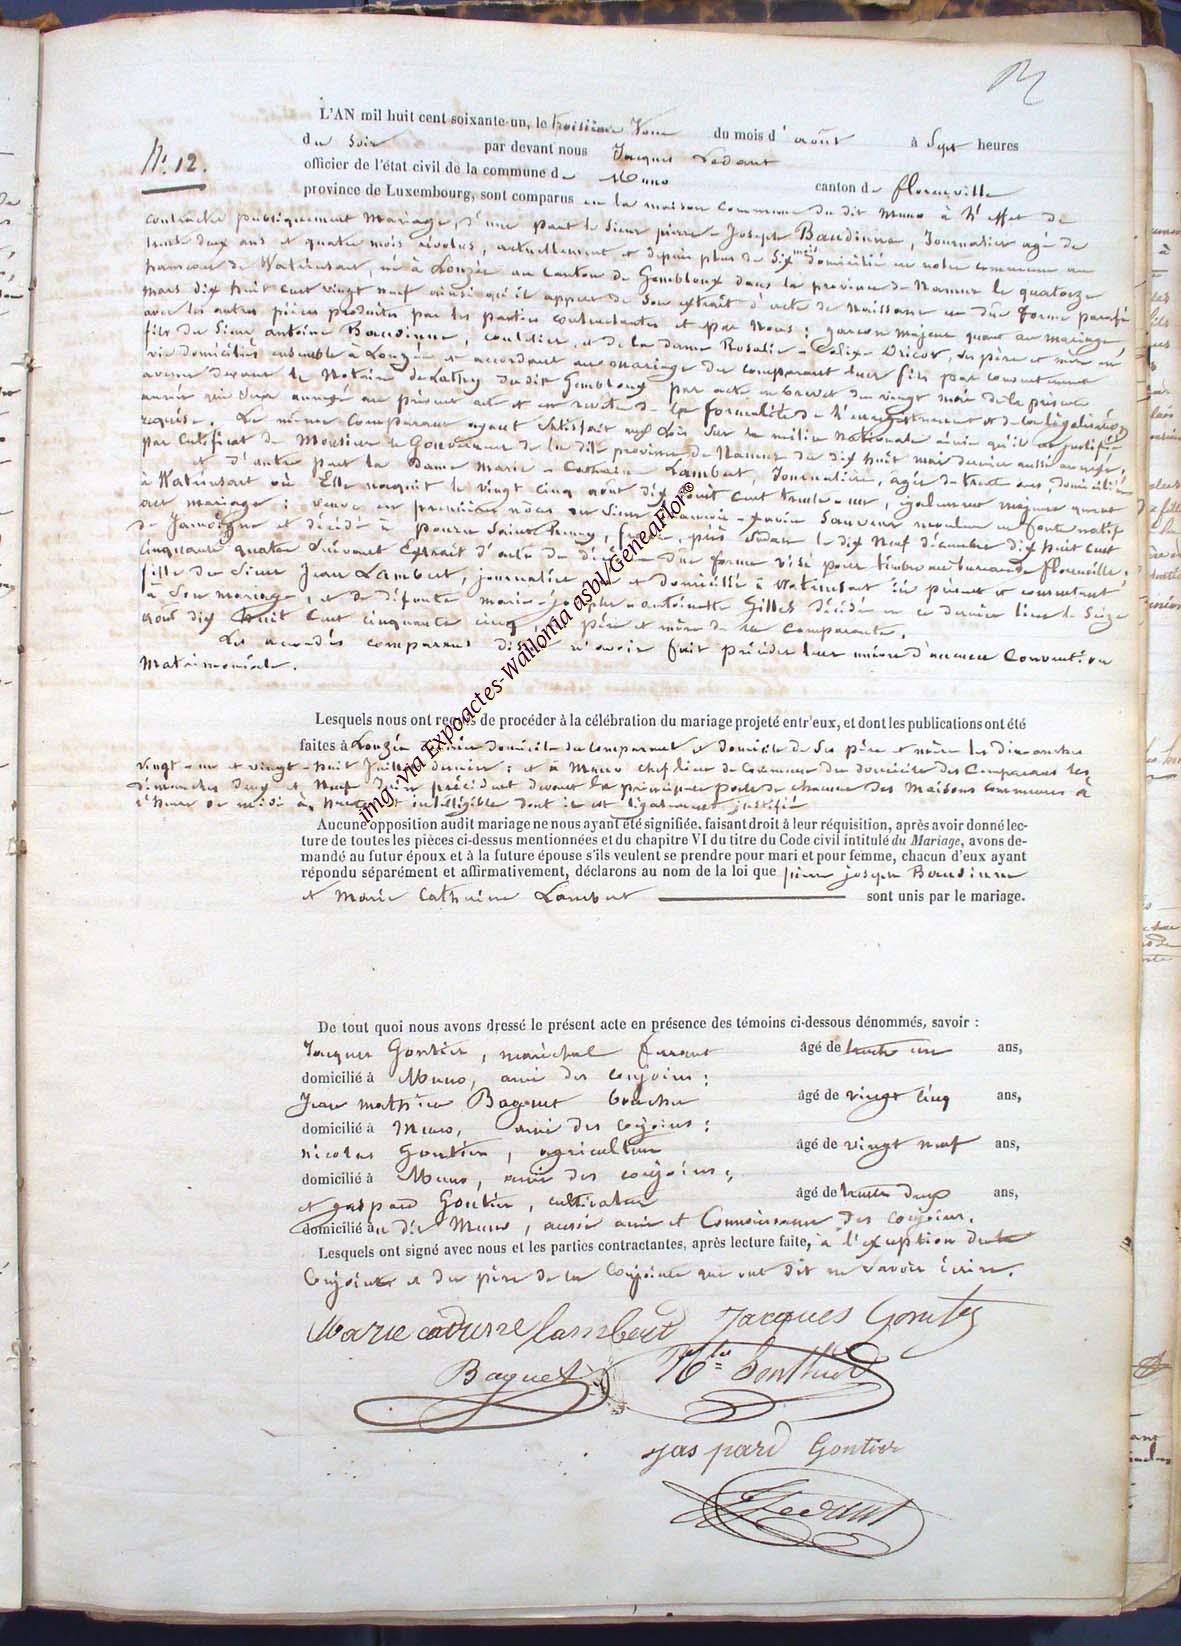 N° 12.
L'AN mil huit cent soixante-un, le troisième Jour du mois d'août à Sept heures
du Soir par devant nous Jacques Ledant
officier de l'état civil de la commune de Muno canton de florenville
province de Luxembourg, sont comparus en la maison Commune du dit Muno à l'effet de
contracter publiquement Mariage, d'une part le Sieur pierre-Joseph Baudinne, Journalier agé de
trente deux ans et quatre mois révolus, actuellement et depuis plus de Six mois domicilié en notre commune au
hameau de Watrinsart, né à Lonzée au Canton de Gembloux dans la province de Namur le quatorze
mars dix huit cent vingt neuf ainsi qu'il appert de Son extrait d'acte de Naissance en due forme paraphé
avec les autres pièces produites par les parties contractantes et par Nous; garçon majeur quant au mariage,
fils du Sieur antoine Baudinne, et de la dame Rosalie Dricot, Ses père et mère en
vie domiciliés ensemble à Lonzée et accordant au mariage du comparant leur fils par consentement
avenu devant le Notaire de Gembloux par acte en brevet du vingt mai de la présente
année qui Sera annexé au présent act et en revêtu de la formalité de l'enregistrement et de la légalisation
requise. Le même Comparant ayant Satisfait aux lois Sur la milice Nationale ainsi qu'il est justifié
par Certificat de Monsieur le Gouverneur de la dite province de Namur du dix huit mai dernier aussi annexé,
et d'autre part la Dame Marie-Catherine Lambert, Journalière, agée de trente ans, domiciliée
à Watrinsart où Elle naquit le vingt cinq août dix huit cent trente-un, également majeure quant
au mariage; veuve en premières nôces du Sieur francois-Xavier Sauveur mouleur en fonte natif
de Jamoigne et décédé à pourru Saint Remy, france, près Sedan le dix Neuf décembre dix huit cent
cinquante quatre Suivant Extrait d'acte de décès en due forme visé pour timbre au bureau de florenville,
fille du Sieur Jean Lambert, journalier et domicilié à Watrinsart ici présent et consentant
à Son mariage, et de défunte marie-josephe-antoinette Gilles décédée en ce dernier lieu le Seize
août dix huit Cent cinquante cinq, père et mère de la comparante.
Les accordés comparans disent n'avoir fait précéder leur union d'aucune Convention
Matrimoniale.
Lesquels nous ont requis de procéder à la célébration du mariage projeté entr'eux, et dont les publications ont été
faites à Lonzée dernier domicile du comparant et domicile de Ses père et mère les Dimanches
vingt-un et vingt-huit Juillet dernier; et à Muno chef lieu de Commune du domicile des Comparans les
dimanches deux et Neuf Juin précédent devant la principale porte de chacune des Maisons communes à
l'heure de midi à haute et intelligible dont il est légalement justifié
Aucune opposition audit mariage ne nous ayant été signifiée, faisant droit à leur réquisition, après avoir donné lec-
ture de toutes les pièces ci-dessus mentionnées et du chapitre VI du titre du Code civil intitulé du Mariage, avons de-
mandé au futur époux et à la future épouse s'ils veulent se prendre pour mari et pour femme, chacun d'eux ayant
répondu séparément et affirmativement, déclarons au nom de la loi que pierre joseph Baudinne
et Marie Catherine Lambert sont unis par le mariage.
De tout quoi nous avons dressé le présent acte en présence des témoins ci-dessous dénommés, savoir :
Jacques Gontier, maréchal ferrant âgé de trente un ans,
domicilié à Muno, ami des conjoins;
Jean mathieu Baguet boucher âgé de vingt cinq ans,
domicilié à Muno, ami des conjoins;
nicolas Gontier, agriculteur âgé de vingt neuf ans,
domicilié à Muno, ami des conjoins;
et gaspard Gontier, cultivateur âgé de trente deux ans,
domicilié au dit Muno, aussi ami et Connaissance des conjoins.
Lesquels ont signé avec nous et les parties contractantes, après lecture faite, à l'exception du
Conjoint et du père de la Conjointe qui ont dit ne Savoir écrire.
Marie caterine lambert Jacques Gontier
Baguet Nlas Gonthier
gaspard Gontier
J Ledant
img. via Expoactes-Wallonia asbl/GeneaFlor®